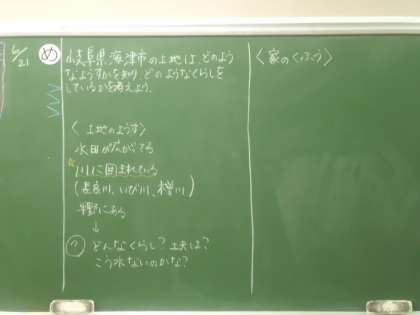 6/21
め
岐阜県海津市の土地は、どのよう
なようすかを知り、どのようなくらしを
しているかを考えよう。
〈土地のようす〉
水田が広がってる
川に囲まれている
(長良川、いび川、木曽川)
平野にある
↓
? どんなくらし?工夫は?
こう水ないのかな?
〈家のくふう〉